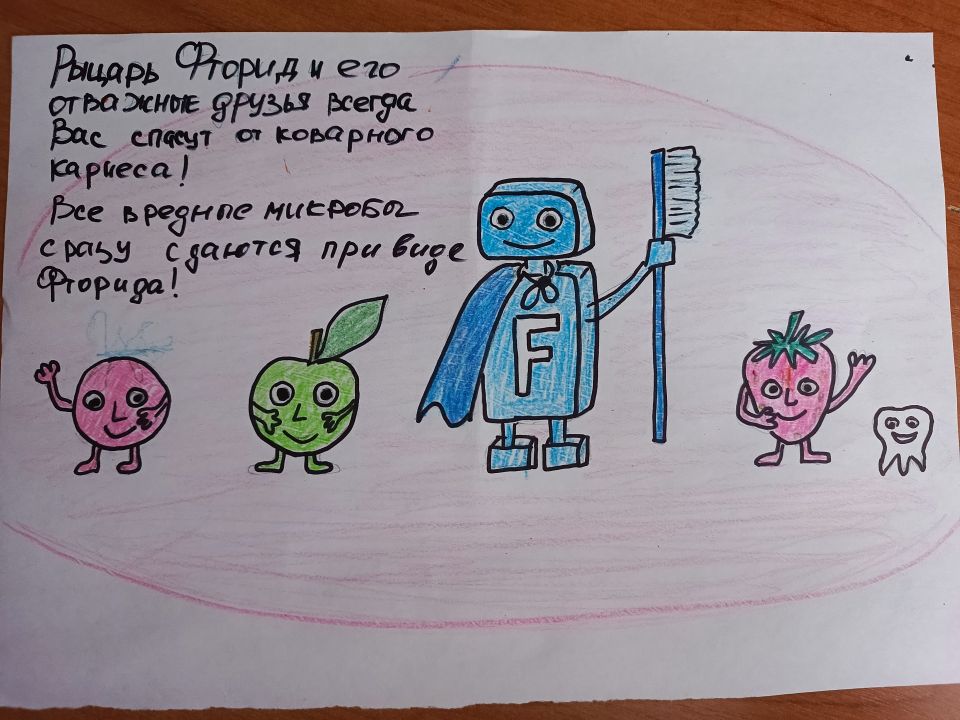 Рыцарь Фторид и его
отважные друзья всегда
Вас спасут от коварного
кариеса!
Все вредные микробы
сразу сдаются при виде
Фторида!
F